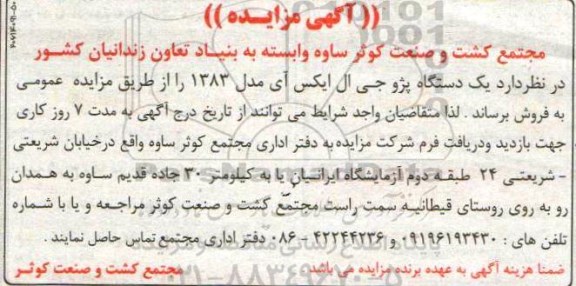 (( آگهی مزایـده ))
مجتمع کشت و صنعت کوثر ساوه وابسته به بنیـاد تعاون زندانیان کشـور
در نظردارد یک دستگاه پژو جـی ال ایکس آی مدل ۱۳۸۳ را از طریق مزایده عمومـی
به فروش برساند . لذا متقاضیان واجد شرایط می توانند از تاریخ درج آگهی به مدت ۷ روز کاری
جهت بازدید ودریافت فرم شرکت مزایده به دفتر اداری مجتمع کوثر ساوه واقع درخیابان شریعتی
- شریعتـی ۲۴ طبقـه دوم آزمایشگاه ایرانیـان یا به کیلومتر ۳۰ جاده قدیم سـاوه به همدان
رو به روی روستای قیطانیـه سمت راست مجتمع کشت و صنعت کوثر مراجعـه و یا با شماره
تلفن های : ۰۹۱۹۶۱۹۳۴۳۰ و ۴۲۲۴۴۲۳۶ - ۰۸۶ دفتر اداری مجتمع تماس حاصل نمایند .
ضمنا هزینه آگهی به عهده برنده مزایده می باشد
مجتمع کشت و صنعت کوثـر
۰۲۱-۸۸۳۴۹۶۷۰-۵